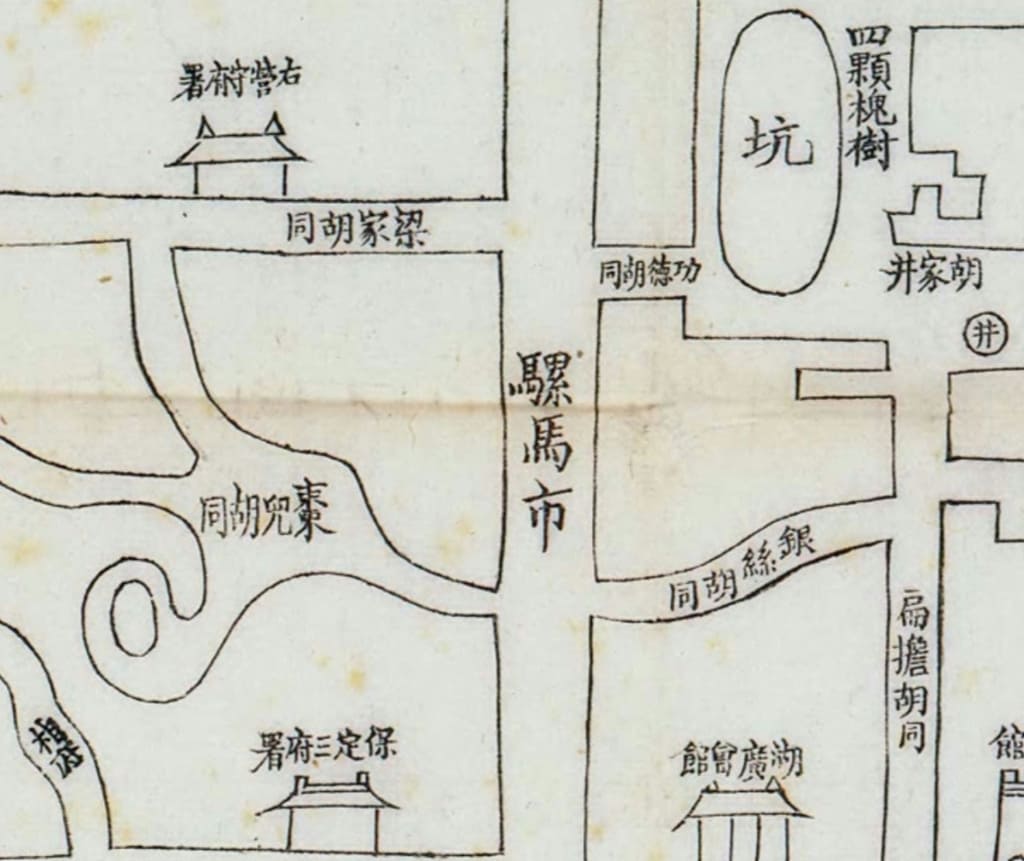 四顆槐樹
右營守府署
坑
梁家胡同
功德胡同
胡家井
井
騾馬市
棗兒胡同
銀絲胡同
扁擔胡同
保定三府署
湖廣會館
館